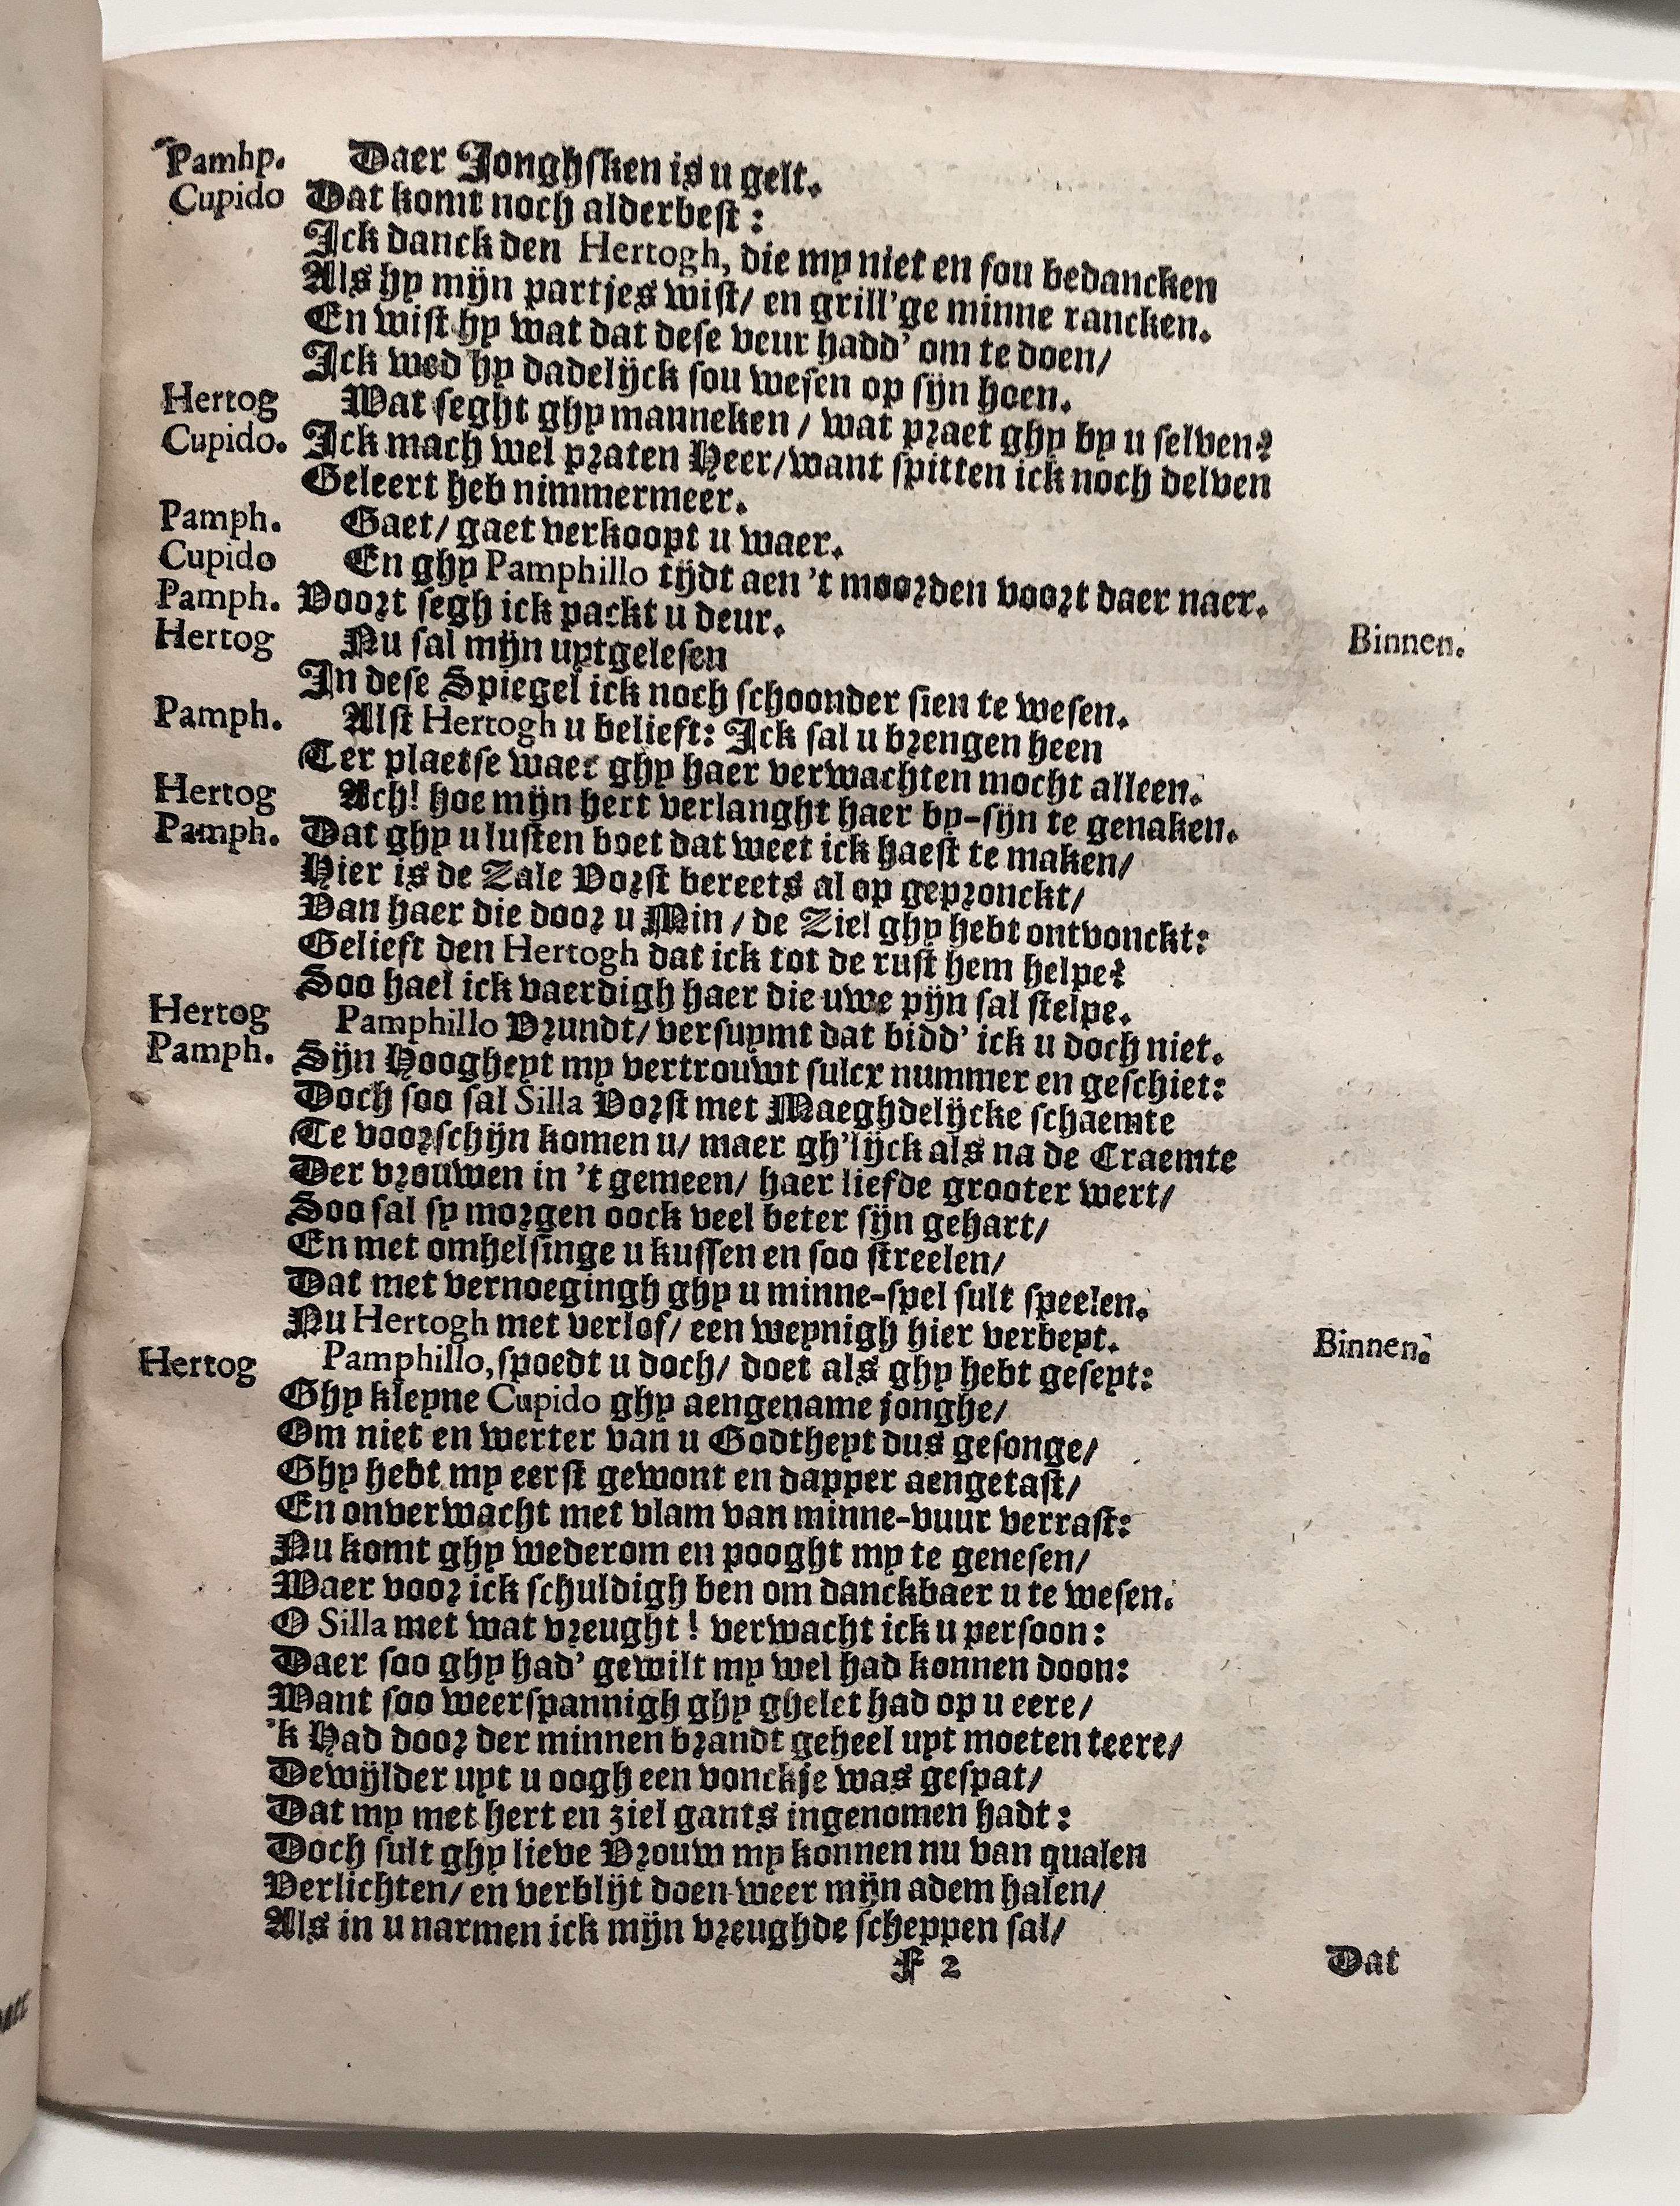 Pamhp. Daer Jonghsken is u gelt.
Cupido Dat komt noch alderbest:
Ick danck den Hertogh, die my niet en sou bedancken
Als hy mijn partjes wist/ en grill'ge minne rancken.
En wist hy wat dat dese veur hadd' om te doen/
Ick wed hy dadelijck sou wesen op sijn hoen.
Hertog Wat seght ghy manneken/ wat praet ghy by u selven?
Cupido. Ick mach wel praten Heer/ want spitten ick noch delven
Geleert heb nimmermeer.
Pamph. Gaet/ gaet verkoopt u waer.
Cupido En ghy Pamphillo tijdt aen 't moorden voort daer naer.
Pamph. Voort segh ick packt u deur. Binnen.
Hertog Nu sal mijn uytgelesen
In dese Spiegel ick noch schoonder sien te wesen.
Pamph. Alst Hertogh u belieft: Ick sal u brengen heen
Ter plaetse waer ghy haer verwachten mocht alleen.
Hertog Ach! hoe mijn hert verlanght haer by-sijn te genaken.
Pamph. Dat ghy u lusten boet dat weet ick haest te maken/
Hier is de Zale Vorst bereets al op gepronckt/
Van haer die door u Min/ de Ziel ghy hebt ontvonckt:
Gelieft den Hertogh dat ick tot de rust hem helpe?
Soo hael ick vaerdigh haer die uwe pijn sal stelpe.
Hertog Pamphillo Vrundt/ versuymt dat bidd' ick u doch niet.
Pamph. Sijn Hoogheyt my vertrouwt sulcx nummer en geschiet:
Doch soo sal Silla Vorst met Maeghdelijcke schaemte
Te voorschijn komen u/ maer gh'lijck als na de Craemte
Der vrouwen in 't gemeen/ haer liefde grooter wert/
Soo sal sy morgen oock veel beter sijn gehart/
En met omhelsinge u kussen en soo streelen/
Dat met vernoegingh ghy u minne-spel sult speelen.
Nu Hertogh met verlof/ een weynigh hier verbeyt. Binnen.
Hertog Pamphillo, spoedt u doch/ doet als ghy hebt geseyt:
Ghy kleyne Cupido ghy aengename jonghe/
Om niet en werter van u Godtheyt dus gesonge/
Ghy hebt my eerst gewont en dapper aengetast/
En onverwacht met vlam van minne-vuur verrast:
Nu komt ghy wederom en pooght my te genesen/
Waer voor ick schuldigh ben om danckbaer u te wesen.
O Silla met wat vreught! verwacht ick u persoon:
Daer soo ghy had' gewilt my wel had konnen doon:
Want soo weerspannigh ghy ghelet had op u eere/
'k Had door der minnen brandt geheel uyt moeten teere/
Dewijlder uyt u oogh een vonckje was gespat/
Dat my met hert en ziel gants ingenomen hadt:
Doch sult ghy lieve Vrouw my konnen nu van qualen
Verlichten/ en verblijt doen weer mijn adem halen/
Als in u narmen ick mijn vreughde scheppen sal/
F 2 Dat